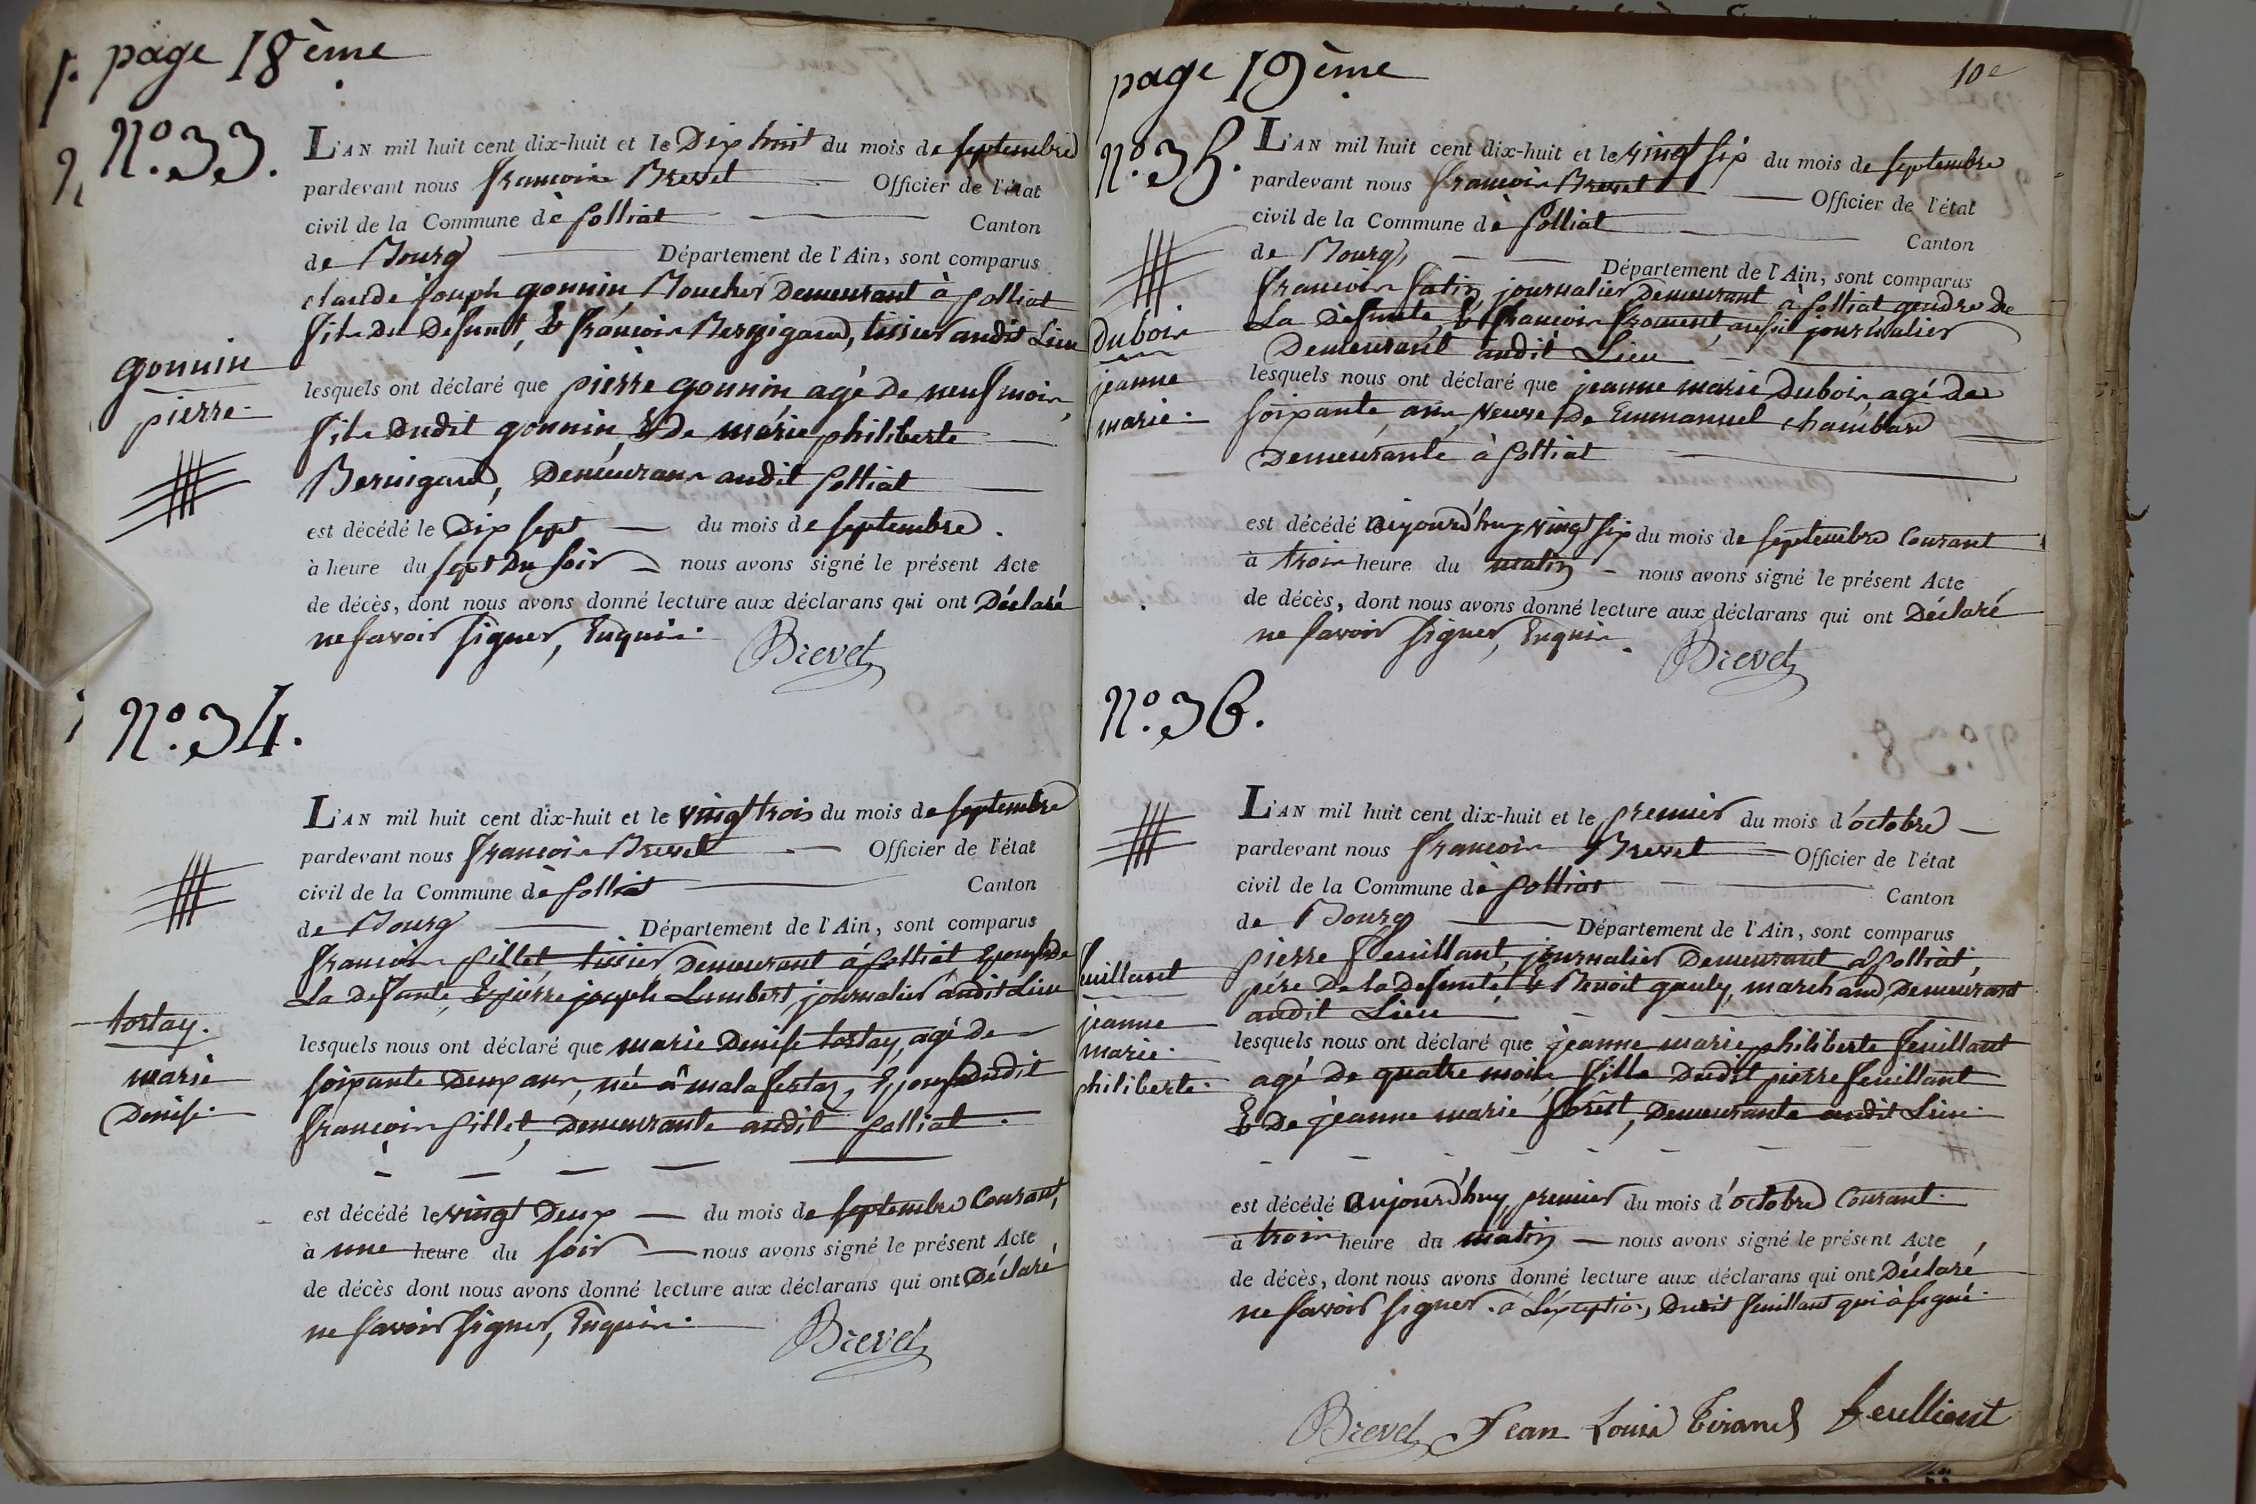 page 18ème
N.° 33.
L'AN mil huit cent dix-huit et le Dix huit du mois de septembre
pardevant nous françois Brevet Officier de l'état
civil de la Commune de polliat Canton
de Bourg Département de l'Ain, sont comparus
claude joseph gonnin Boucher Demeurant à polliat
Du Defunt, & françois Bernigaud, tissier audit Lieu
gonnin
pierre
lesquels ont déclaré que pierre gonnin agé De neuf mois,
fils Dudit gonnin, & De mârie philiberte
Bernigaud, Demeurans audit polliat
est décédé le Dix sept du mois de septembre.
à heure du sept Du soir nous avons signé le présent Acte
de décès, dont nous avons donné lecture aux déclarans qui ont Déclaré
ne savoir signer, Enquis. Brevet
N.° 34.
L'AN mil huit cent dix-huit et le vingt trois du mois de septembre
pardevant nous françois Brevet Officier de l'état
civil de la Commune de polliat Canton
de Bourg Département de l'Ain, sont comparus
françois pillet, tissier Demeurant à polliat Epoux De
La Defunte, & pierre joseph Lambert, journalier audit Lieu
tortay.
marie
Denise.
lesquels nous ont déclaré que marie Denise tortay, agé De
soixante Deux ans, né à malafertaz, Epouse Dudit
françois pillet, Demeurante audit polliat.
est décédé le vingt Deux du mois de septembre Courant,
à une heure du soir nous avons signé le présent Acte
de décès dont nous avons donné lecture aux déclarans qui ont Déclaré
ne savoir signer, Enquis. Brevet
page 19ème
10e
N.° 35.
L'AN mil huit cent dix-huit et le vingt six du mois de septembre
pardevant nous françois Brevet Officier de l'état
civil de la Commune de polliat Canton
de Bourg, Département de l'Ain, sont comparus
françois journalier Demeurant à polliat gendre De
La Défunte, & françois froment, aussi journalier
Demeurant audit Lieu
dubois
jeanne
marie.
lesquels nous ont déclaré que jeanne marie Dubois, agé De
soixante ans, veuve De Emmanuel chambard
Demeurante à polliat
est décédé aujourd'huy vingt six du mois de septembre Courant
à trois heure du matin nous avons signé le présent Acte
de décès, dont nous avons donné lecture aux déclarans qui ont Déclaré
ne savoir signer, Enquis. Brevet
N.° 36.
L'AN mil huit cent dix-huit et le premier du mois d'octobre
pardevant nous françois Brevet Officier de l'état
civil de la Commune de polliat Canton
de Bourg Département de l'Ain, sont comparus
pierre feuillant, journalier Demeurant à polliat,
pére De la Defunte, & Benoit gauly, marchand Demeurant
audit Lieu
feuillant
jeanne
marie.
philiberte.
lesquels nous ont déclaré que jeanne marie philiberte feuillant
agé De quatre mois, fille Dudit pierre feuillant
& De jeanne marie forest, Demeurante audit Lieu.
est décédé aujourd'huy, premier du mois d'octobre Courant.
à trois heure du matin nous avons signé le présent Acte
de décès, dont nous avons donné lecture aux déclarans qui ont Déclaré
ne savoir signer. a L'exception, Dudit feuillant qui à signé.
Brevet Jean Louis Tirand feullient